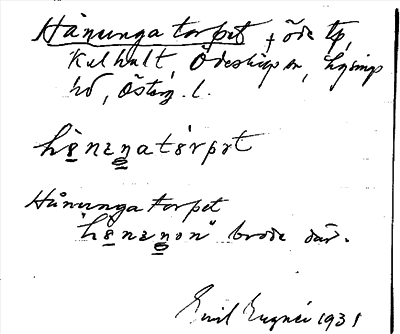 Hånunga torpet, öde tp,
Kulhult, Ödeshögs sn, Lysings
hd, Österg. l.
hånanatårpat
Hånunga torpet
"hånanon" brode där.
Emil 1931